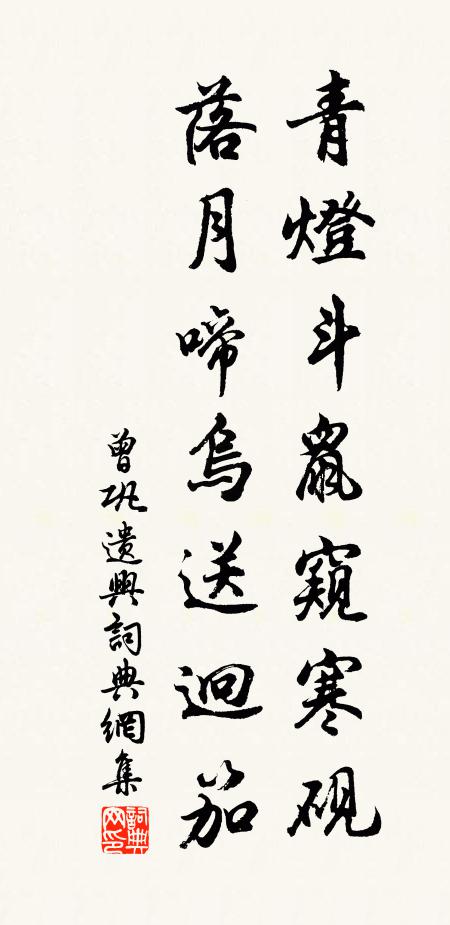 青燈斗鼠窺寒硯
落月啼烏送迥笳
曾巩遣興詞典網集
詞典网印